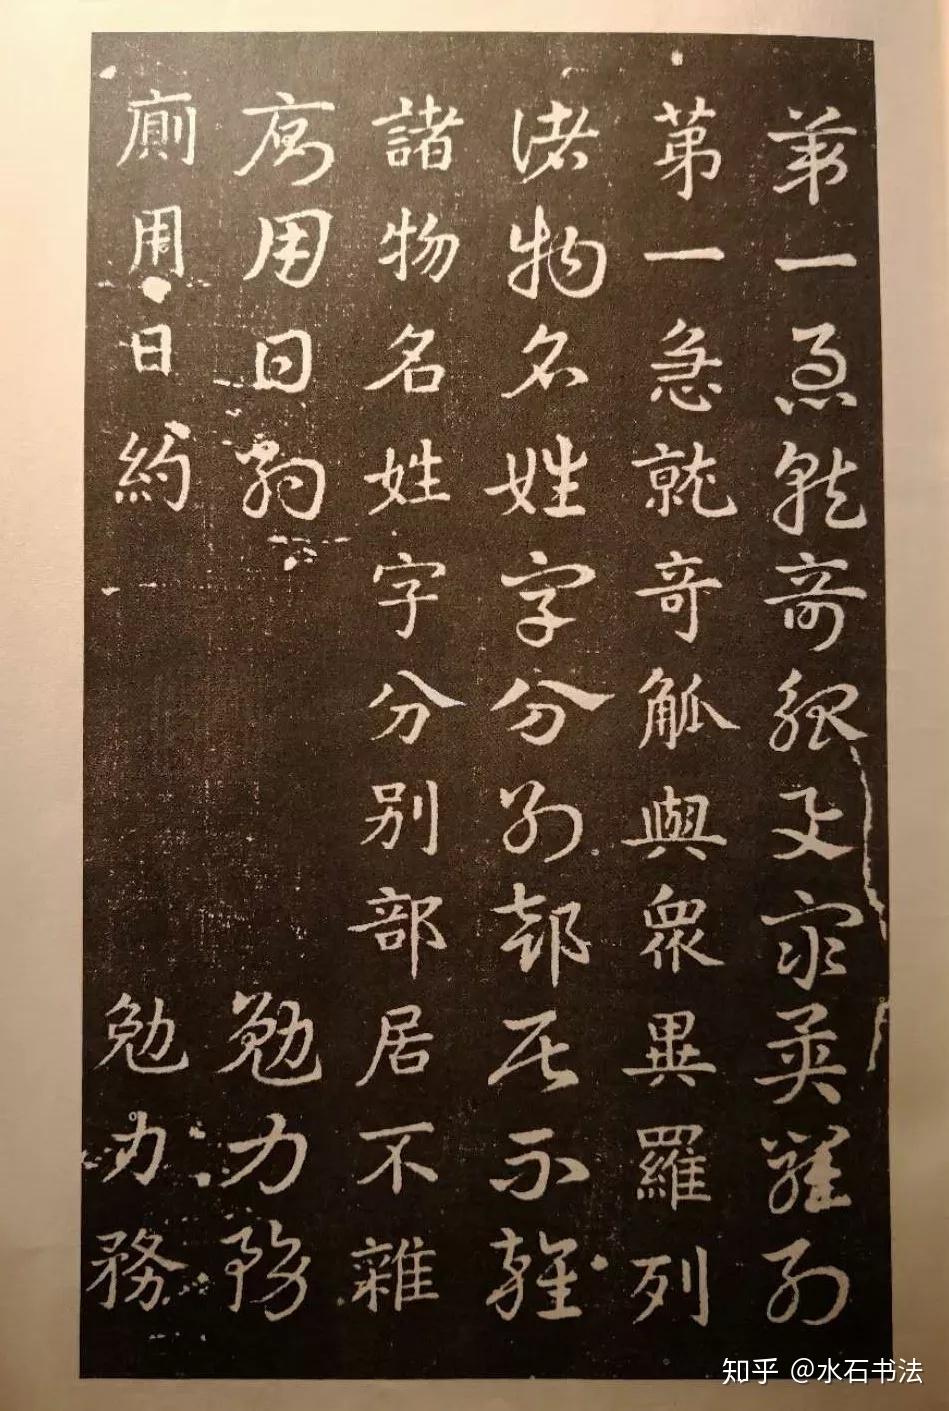 第一急就奇觚与众异罗列
第一急就奇觚與衆異羅列
诸物名姓字分别部居不雜
諸物名姓字分别部居不雜
廁用日約勉力務
廁用日約勉力務
知乎 @水石书法